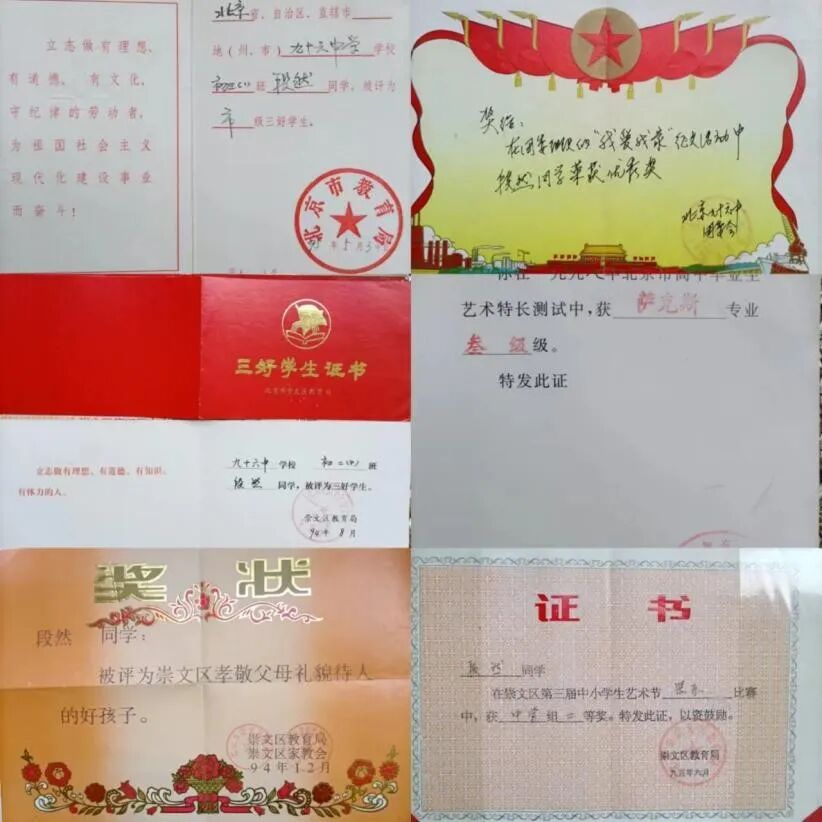 立志做有理想、
有道德、有文化、
守纪律的劳动者,
为祖国社会主义
现代化建设事业
而奋斗!
北京市、自治区、直辖市
地(州、市)九十六中学学校
初二(1)班段然同学,被评为
市级三好学生。
北京市教育局
年5月3
奖给:
在团委组织的"我爱我家"征文活动中
段然同学荣获优秀奖
北京九十六中
团委会
三好学生证书
北京市崇文区教育局
立志做有理想、有道德、有知识、
有体力的人。
九十六中学校 初二(1)班
段然同学,被评为三好学生。
崇文区教育局
94年8月
你在一九九八年北京市高中毕业生
艺术特长测试中,获萨克斯专业
叁级级。
特发此证
奖状
段然 同学:
被评为崇文区孝敬父母礼貌待人
的好孩子。
崇文区教育局
崇文区家教会
94年12月
证书
段然同学
在崇文区第三届中小学生艺术节器乐比赛
中,获中学组二等奖。特发此证,以资鼓励。
崇文区教育局
九五年六月